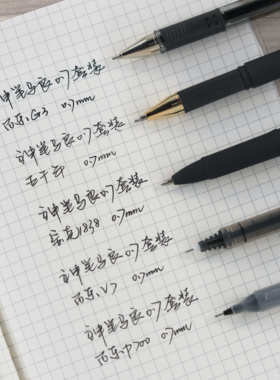 神笔马良0.7套装
百乐G3 0.7mm
神笔马良0.7套装
0.7mm
神笔马良0.7套装
宝克1838 0.7mm
神笔马良0.7套装
百乐V7 0.7mm
神笔马良0.7套装
百乐P700 0.7mm